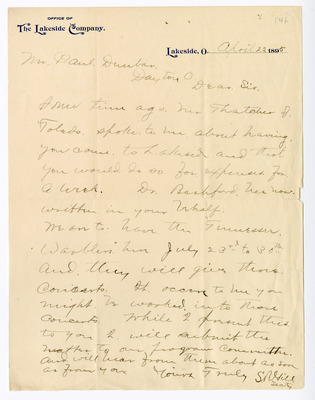 OFFICE OF
The Lakeside Company.
Lakeside, O. April 22 1895
Mr. Paul Dunbar,
Dayton O
Dear Sir.
Some time ago Mr Thatcher of
Toledo spoke to me about having
you come to Lakeside and that
you would do so for expenses for
a week. Dr. Bashford has now
written in your behalf.
We are to have the Tennessee
Warblers here July 23rd to 30th
and they will give three
Concerts. It occurs to me you
might be worked in to those
Concerts. While I present this
to you I will submit the
matter to our program Committee.
and will hear from them about as soon
as from you Yours Truly